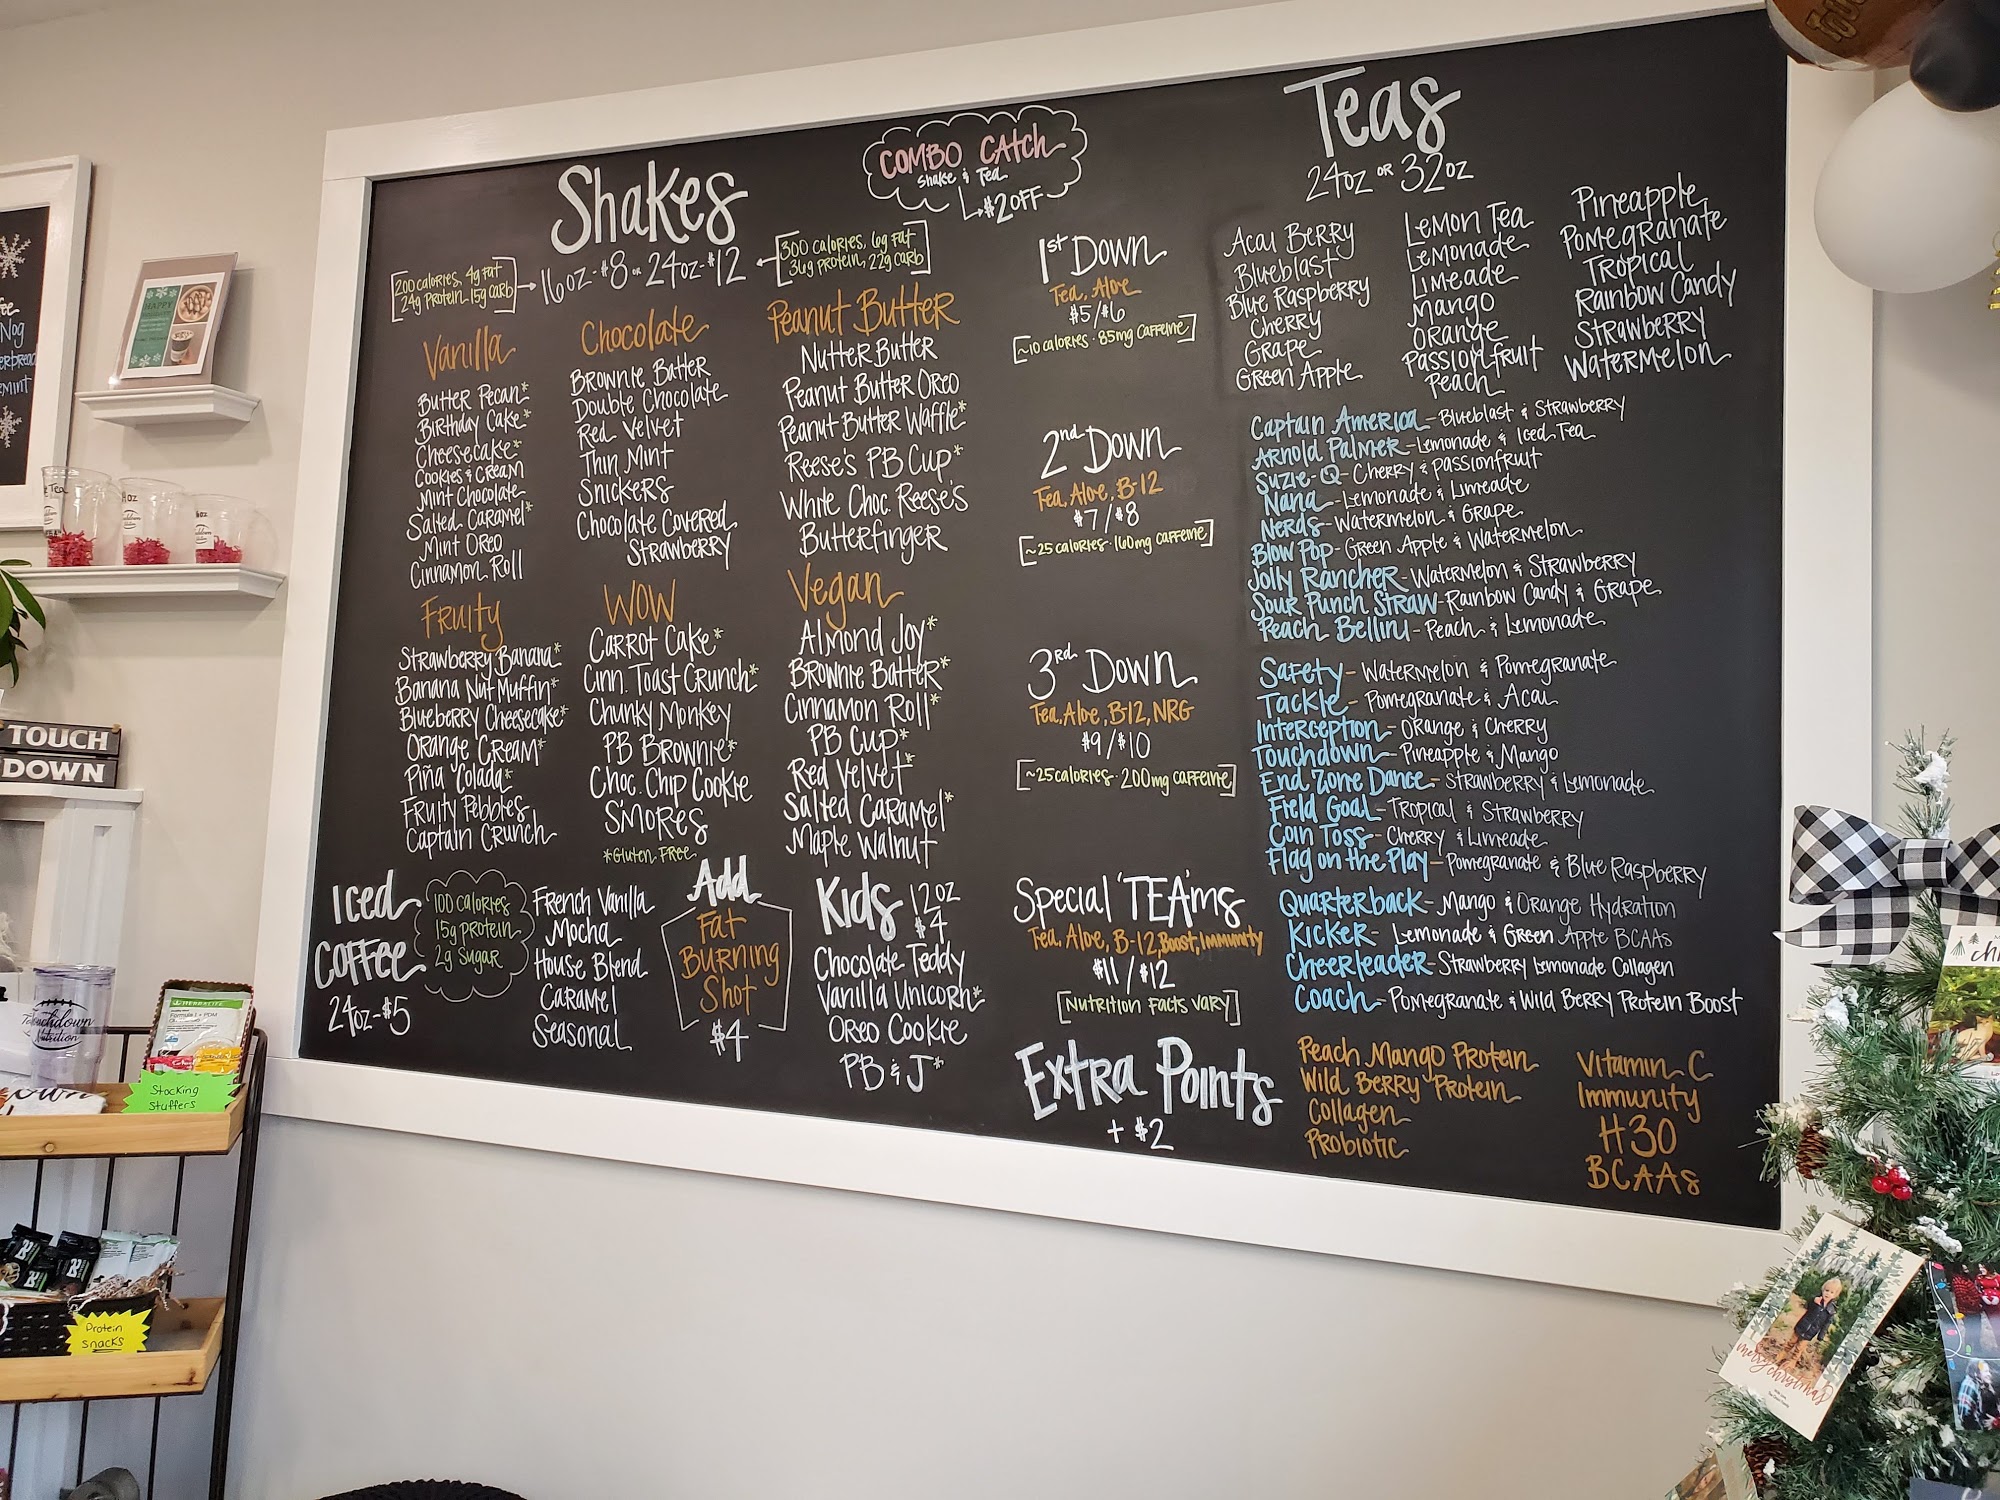 Shakes
16oz - $8 or 24oz - $12
[200 calories, 4g fat
24g protein 15g carb]
[300 calories, 6g fat
36g protein, 22g carb]
COMBO CATCH
Shake & Tea
$2 OFF
Vanilla
Butter Pecan*
Birthday Cake*
Cheesecake*
Cookies & Cream
Mint Chocolate
Salted Caramel*
Mint Oreo
Cinnamon Roll
Chocolate
Brownie Batter
Double Chocolate
Red Velvet
Thin Mint
Snickers
Chocolate Covered
Strawberry
Peanut Butter
Nutter Butter
Peanut Butter Oreo
Peanut Butter Waffle*
Reese's PB Cup*
White Choc. Reese's
Butterfinger
Fruity
Strawberry Banana*
Banana Nut Muffin*
Blueberry Cheesecake*
Orange Cream*
Piña Colada*
Fruity Pebbles
Captain Crunch
WOW
Carrot Cake*
Cinn. Toast Crunch*
Chunky Monkey
PB Brownie*
Choc. Chip Cookie
S'mores
*Gluten Free
Vegan
Almond Joy*
Brownie Batter*
Cinnamon Roll*
PB Cup*
Red Velvet*
Salted Caramel*
Maple Walnut
Iced
Coffee
24oz - $5
100 calories
15g protein
2g sugar
French Vanilla
Mocha
House Blend
Caramel
Seasonal
Add
Fat
Burning
Shot
$4
Kids 12oz
$4
Chocolate Teddy
Vanilla Unicorn*
Oreo Cookie
PB & J*
Teas
24oz or 32oz
1st Down
Tea, Aloe
$5/$6
[~10 calories · 85mg caffeine]
2nd Down
Tea, Aloe, B-12
$7/$8
[~25 calories · 160mg caffeine]
3rd Down
Tea, Aloe, B-12, NRG
$9/$10
[~25 calories · 200mg caffeine]
Special 'TEA'ms
Tea, Aloe, B-12, Boost, Immunity
$11/$12
[Nutrition Facts Vary]
Acai Berry
Blueblast
Blue Raspberry
Cherry
Grape
Green Apple
Lemon Tea
Lemonade
Limeade
Mango
Orange
Passionfruit
Peach
Pineapple
Pomegranate
Tropical
Rainbow Candy
Strawberry
Watermelon
Captain America - Blueblast & Strawberry
Arnold Palmer - Lemonade & Iced Tea
Suzie-Q - Cherry & Passionfruit
Nana - Lemonade & Limeade
Nerds - Watermelon & Grape
Blow Pop - Green Apple & Watermelon
Jolly Rancher - Watermelon & Strawberry
Sour Punch Straw - Rainbow Candy & Grape
Peach Bellini - Peach & Lemonade
Safety - Watermelon & Pomegranate
Tackle - Pomegranate & Acai
Interception - Orange & Cherry
Touchdown - Pineapple & Mango
End Zone Dance - Strawberry & Lemonade
Field Goal - Tropical & Strawberry
Coin Toss - Cherry & Limeade
Flag on the Play - Pomegranate & Blue Raspberry
Quarterback - Mango & Orange Hydration
Kicker - Lemonade & Green Apple BCAAs
Cheerleader - Strawberry Lemonade Collagen
Coach - Pomegranate & Wild Berry Protein Boost
Extra Points
+ $2
Peach Mango Protein
Wild Berry Protein
Collagen
Probiotic
Vitamin C
Immunity
H30
BCAAs
TOUCH
DOWN
Touchdown
Nutrition
HERBALIFE
Stocking
Stuffers
Protein
snacks
merry christmas